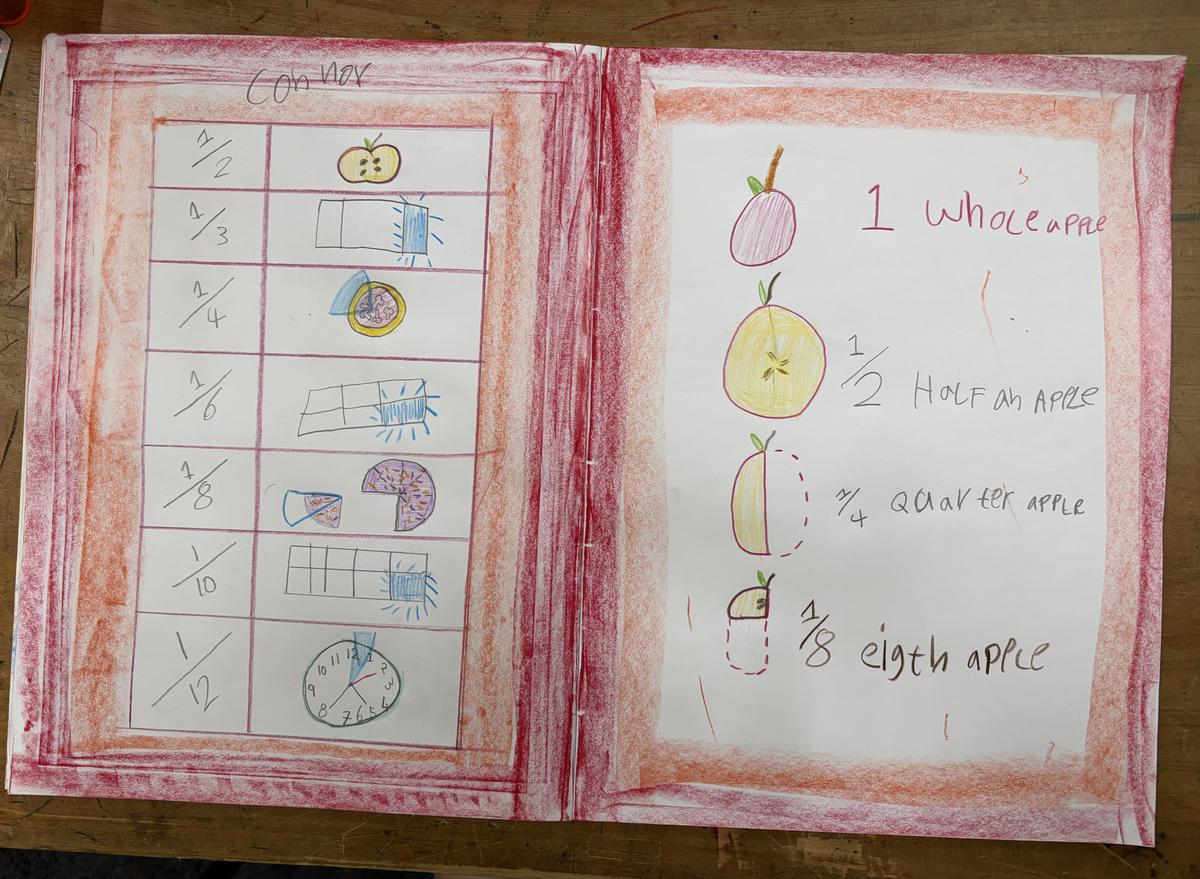 Connor
1/2
1/3
1/4
1/6
1/8
1/10
1/12
10 11 12 1 2 3 4 5 6 7 8 9
1 Whole apple
1/2 Half an Apple
1/4 Quarter apple
1/8 eigth apple